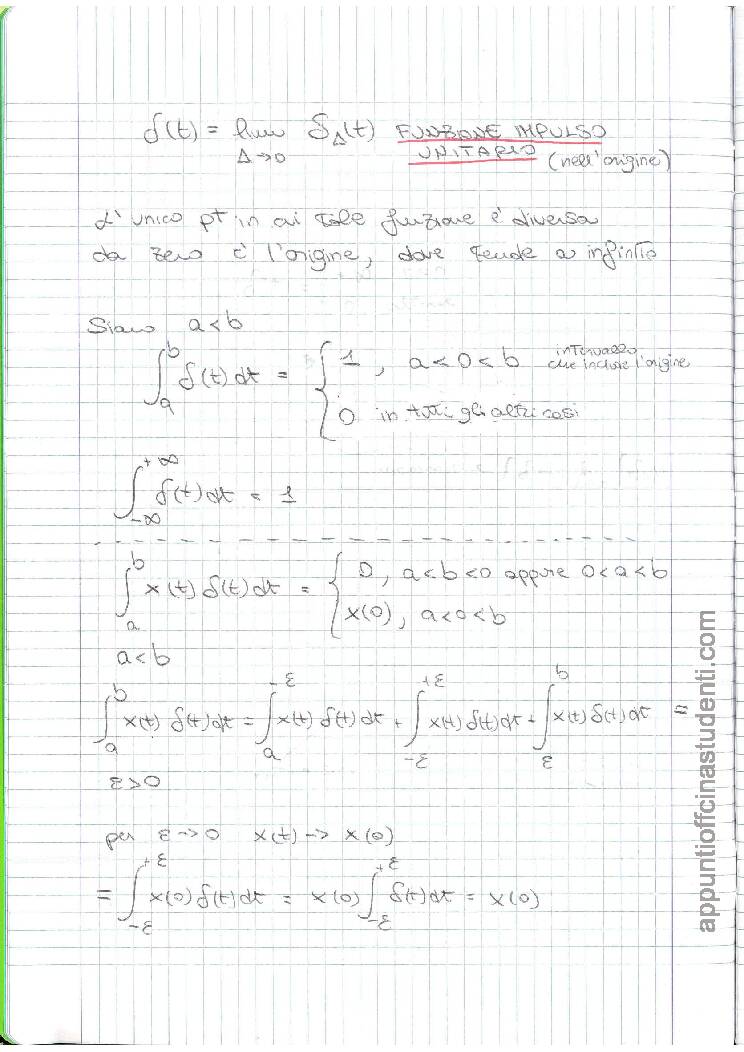 δ(t) = lim δ_Δ(t) FUNZIONE IMPULSO
Δ→0 UNITARIO (nell'origine)
L'unico pt in cui tale funzione è diversa
da zero è l'origine, dove tende a infinito
Siano a<b
∫_a^b δ(t)dt = { 1, a<0<b intervallo che include l'origine
0 in tutti gli altri casi
∫_-∞^+∞ δ(t)dt = 1
∫_a^b x(t) δ(t)dt = { 0, a<b<0 oppure 0<a<b
x(0), a<0<b
a<b
∫_a^b x(t) δ(t)dt = ∫_a^-ε x(t) δ(t)dt + ∫_-ε^+ε x(t) δ(t)dt + ∫_ε^b x(t) δ(t)dt =
ε>0
per ε→0 x(t) -> x(0)
= ∫_-ε^+ε x(0) δ(t)dt = x(0) ∫_-ε^+ε δ(t)dt = x(0)
appuntioffcinastudenti.com